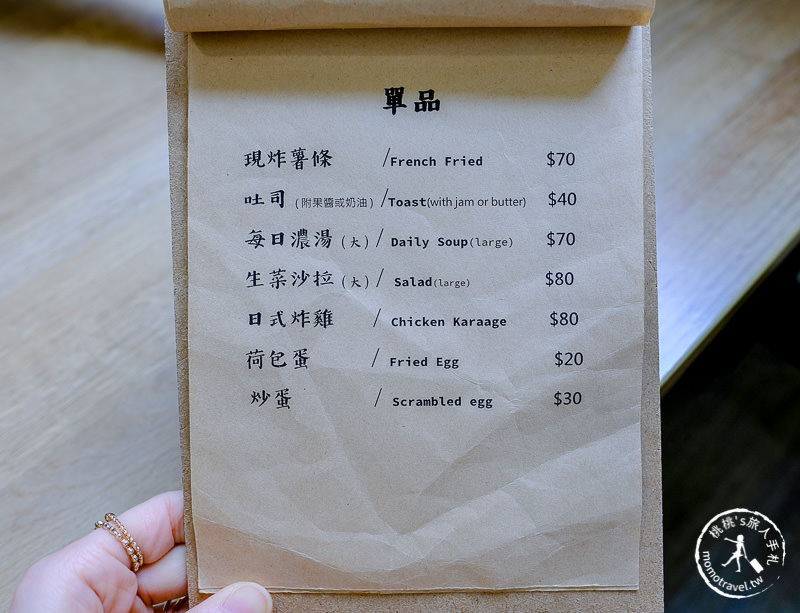 單品
現炸薯條 /French Fried $70
吐司 (附果醬或奶油) /Toast(with jam or butter) $40
每日濃湯 (大) / Daily Soup(large) $70
生菜沙拉 (大) / Salad(large) $80
日式炸雞 / Chicken Karaage $80
荷包蛋 / Fried Egg $20
炒蛋 / Scrambled egg $30
桃桃's旅人手札
momotravel.tw